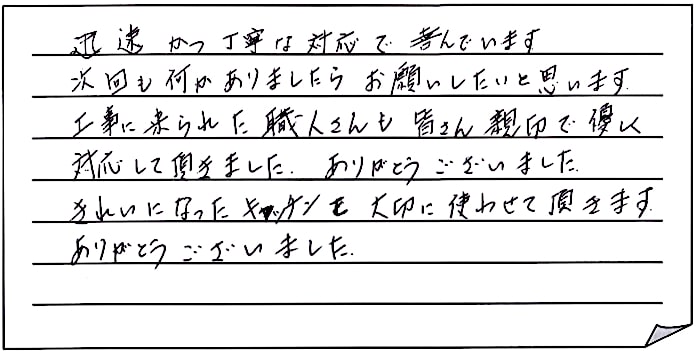 迅速かつ丁寧な対応で喜んでいます
次回も何かありましたらお願いしたいと思います.
工事に来られた職人さんも皆さん親切で優しく
対応して頂きました. ありがとうございました.
きれいになったキッチンを大切に使わせて頂きます.
ありがとうございました.